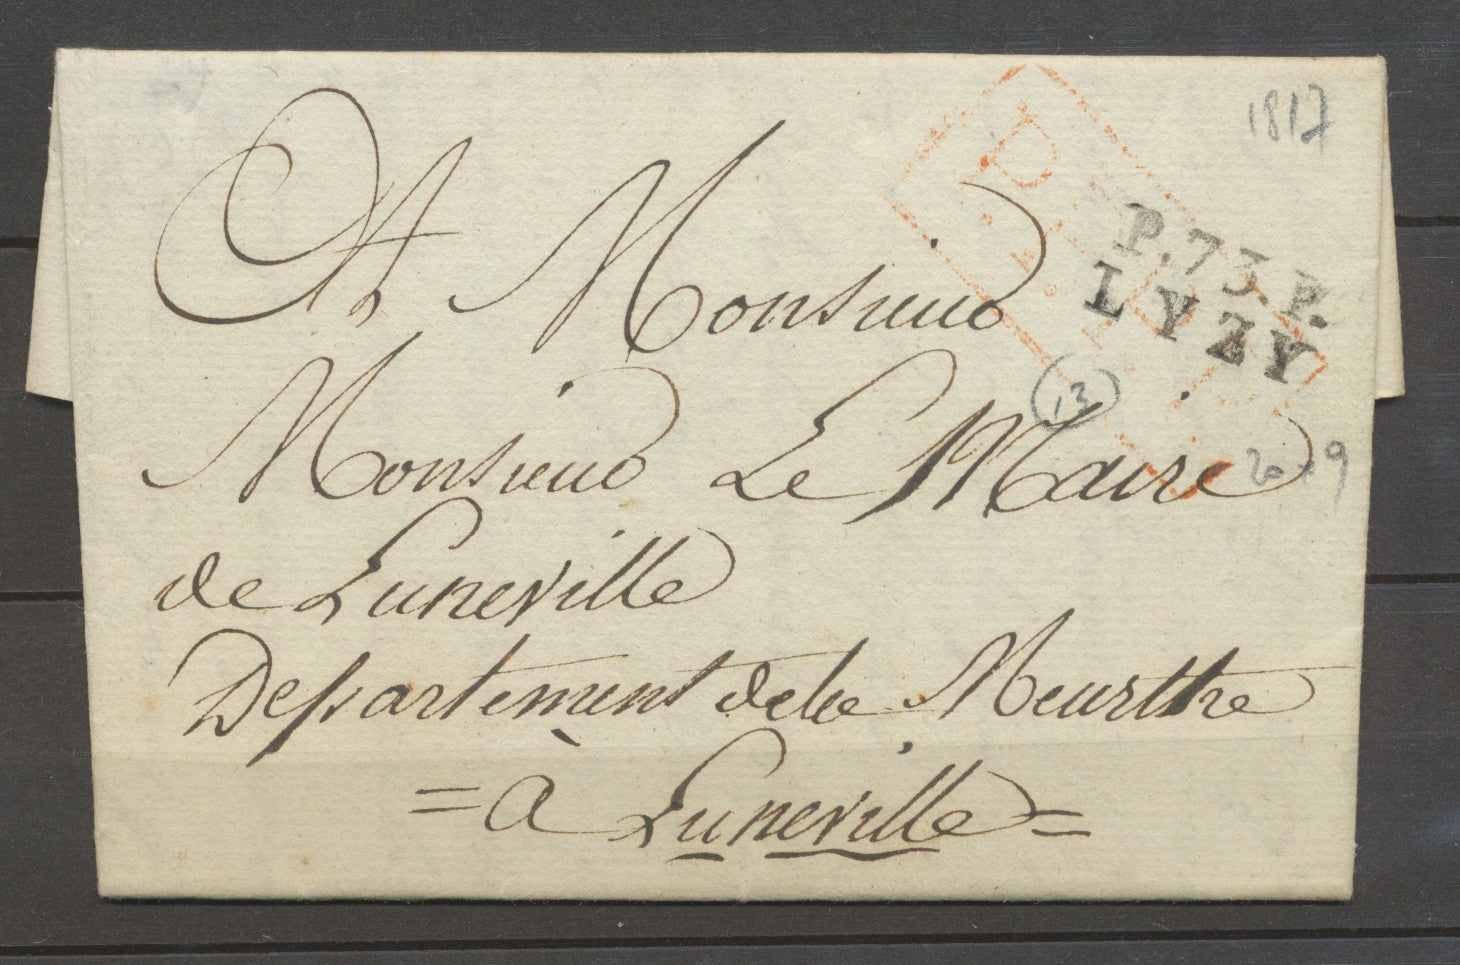 1817
P.73.P.
LYZY
A Monsieur
13
Monsieur Le Maire
de Luneville
Departement de la Meurthe
= à Luneville =